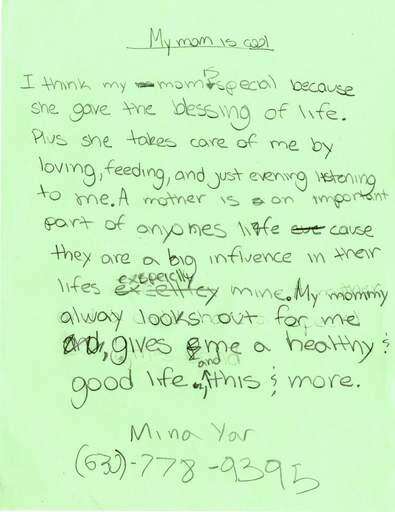 My mom is cool
I think my mom is special because
she gave the blessing of life.
Plus she takes care of me by
loving, feeding, and just evening listening
to me. A mother is an important
part of anyones life cause
they are a big influence in their
lifes exspecilly mine. My mommy
alway looks out for me
, gives me a healthy &
good life, and this & more.
Mina Yar
(630)-778-9395